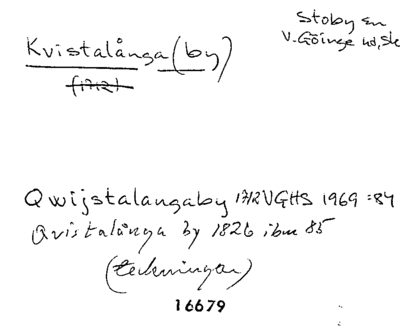 Stoby sn
V. Göinge hd, Sk
Kvistalånga (by)
(1712)
Qwijstalangaby 1712 VGHS 1969 :84
Qvistalånga by 1826 ibm 85
(teckningar)
16679